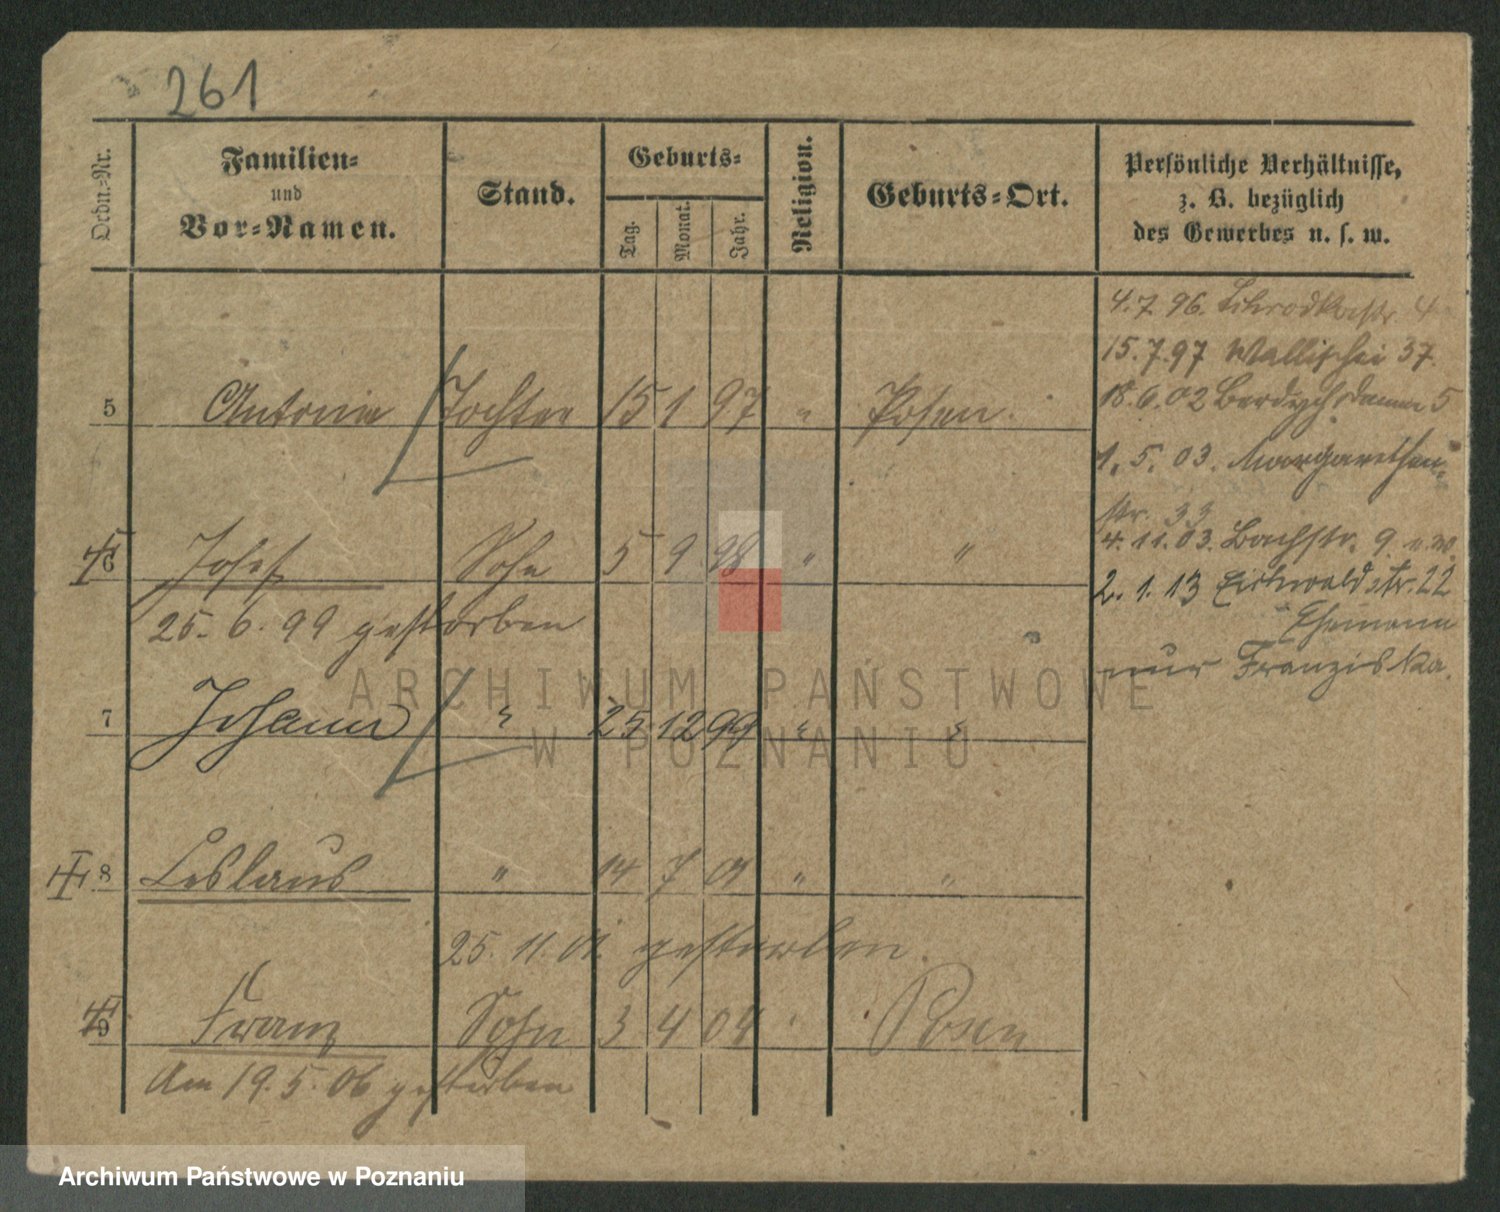 261
Ordn.-Nr.
Familien-
und
Vor-Namen.
Stand.
Geburts-
Tag.
Monat.
Jahr.
Religion.
Geburts-Ort.
Persönliche Verhältnisse,
z. B. bezüglich
des Gewerbes u. s. w.
4.7.96. Schrodkastr 4
15.7.97 Wallischei 37.
5 Antonie Tochter 15 1 97 " Posen.
18.6.02 Berdychdamm 5
1.5.03. Margarethen-
str. 33
4.11.03. Bachstr. 9
6 Josef Sohn 5 9 98 " "
2.1.13 Eichwaldstr. 22
25.6.99 gestorben
Ehemann
nur Franziska.
7 Johann " 25 12 99 " "
8 Ceslaus " 14 7 01 " "
25.11.01. gestorben.
9 Franz Sohn 3 4 04 Posen
Am 19.5.06 gestorben
ARCHIWUM PAŃSTWOWE
W POZNANIU
Archiwum Państwowe w Poznaniu